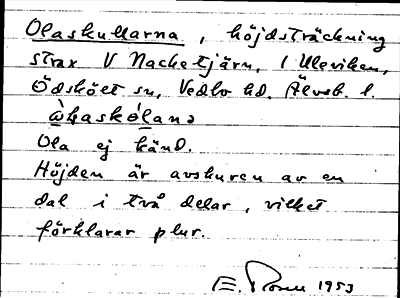 Olaskullarna, höjdsträckning
strax V Nacketjärn, i Uleviken,
Ödskölt sn, Vedbo hd. Älvsb. l.
Ola ej känd.
Höjden är avskuren av en
dal i två delar, vilket
förklarar plur.
E. 1953